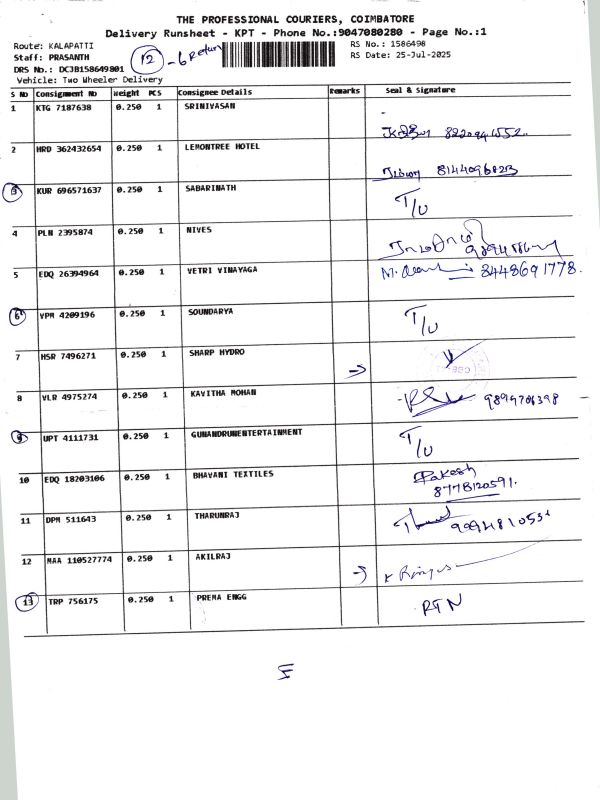 THE PROFESSIONAL COURIERS, COIMBATORE
Delivery Runsheet - KPT - Phone No.:9047080280 - Page No.:1
Route: KALAPATTI
RS No.: 1586498
Staff: PRASANTH
12 - 6 Return
RS Date: 25-Jul-2025
DRS No.: DCJB158649801
Vehicle: Two Wheeler Delivery
S No Consignment No Weight PCS Consignee Details Remarks Seal & Signature
1 KTG 7187638 0.250 1 SRINIVASAN
2 HRD 362432654 0.250 1 LEMONTREE HOTEL
3 KUR 696571637 0.250 1 SABARINATH T/U
4 PLN 2395874 0.250 1 NIVES
5 EDQ 26394964 0.250 1 VETRI VINAYAGA 8448691778.
6 VPM 4209196 0.250 1 SOUNDARYA T/U
7 HSR 7496271 0.250 1 SHARP HYDRO
8 VLR 4975274 0.250 1 KAVITHA MOHAN 9894706398
9 UPT 4111731 0.250 1 GUNANDRUNENTERTAINMENT T/U
10 EDQ 18203106 0.250 1 BHAVANI TEXTILES Rakesh
8778120591.
11 DPM 511643 0.250 1 THARUNRAJ
12 MAA 110527774 0.250 1 AKILRAJ
13 TRP 756175 0.250 1 PREMA ENGG RTN